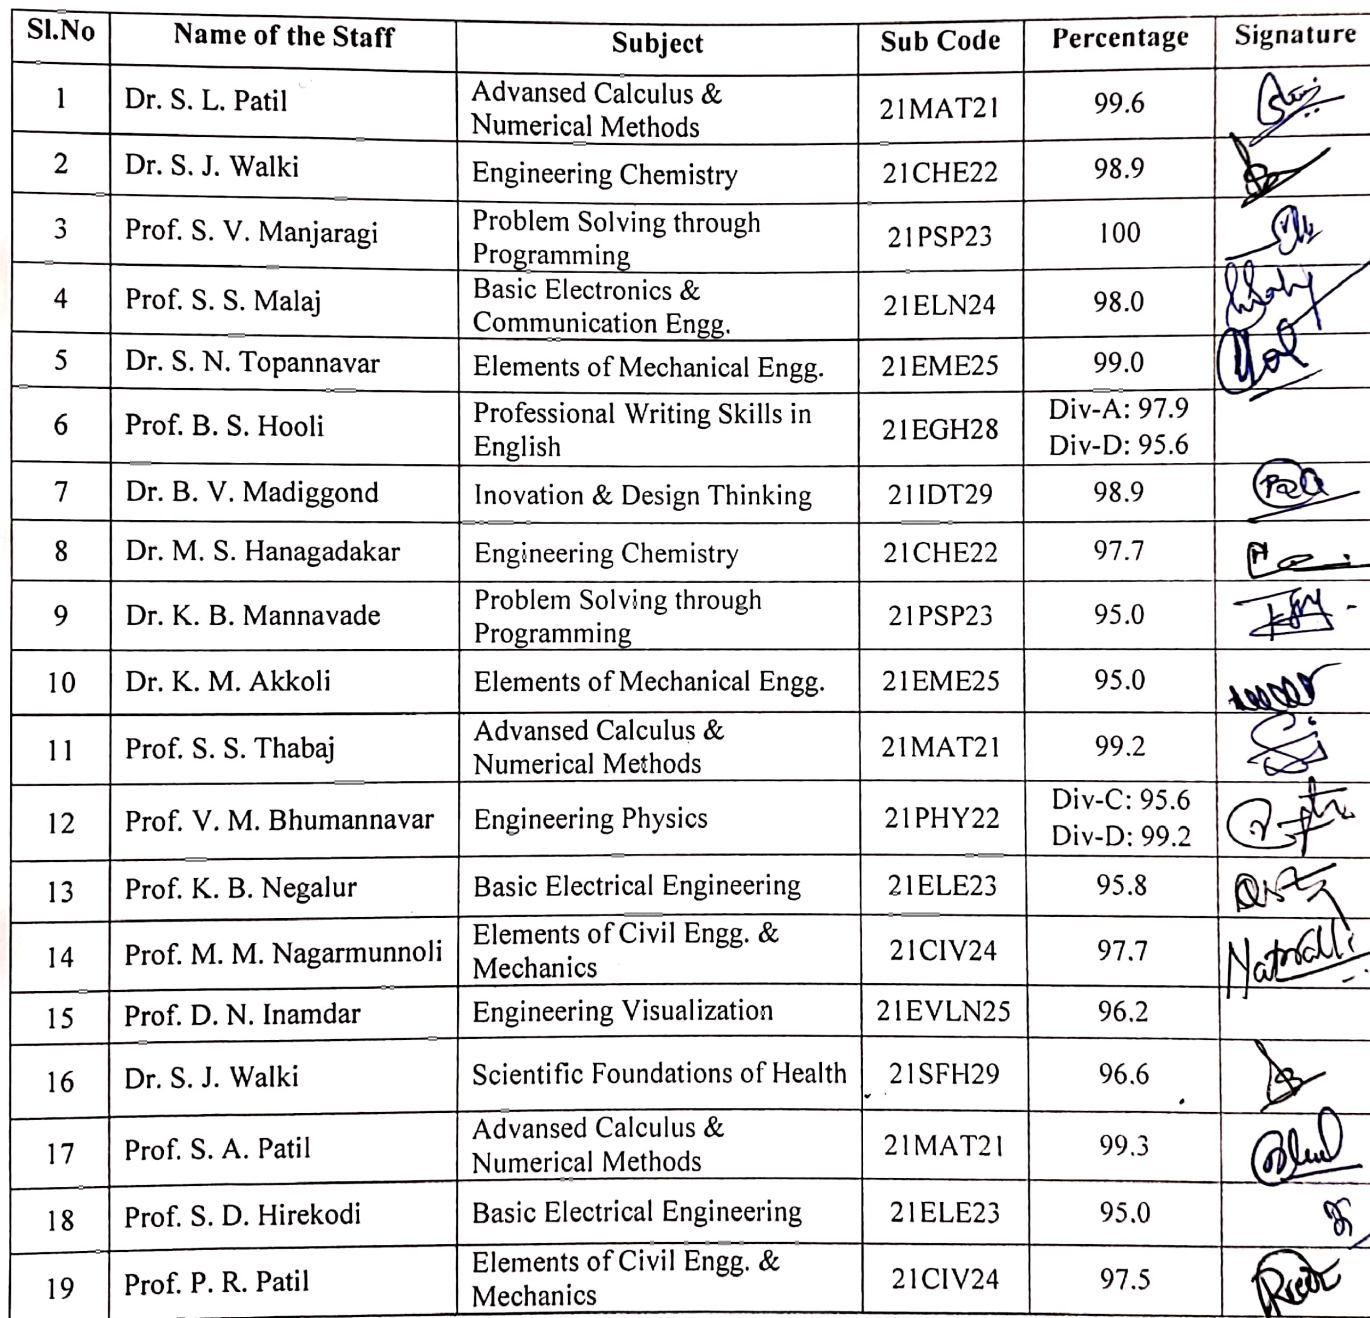 Sl.No Name of the Staff Subject Sub Code Percentage Signature
1 Dr. S. L. Patil Advansed Calculus & 21MAT21 99.6
Numerical Methods
2 Dr. S. J. Walki Engineering Chemistry 21CHE22 98.9
3 Prof. S. V. Manjaragi Problem Solving through 21PSP23 100
Programming
4 Prof. S. S. Malaj Basic Electronics & 21ELN24 98.0
Communication Engg.
5 Dr. S. N. Topannavar Elements of Mechanical Engg. 21EME25 99.0
6 Prof. B. S. Hooli Professional Writing Skills in 21EGH28 Div-A: 97.9
English Div-D: 95.6
7 Dr. B. V. Madiggond Inovation & Design Thinking 21IDT29 98.9
8 Dr. M. S. Hanagadakar Engineering Chemistry 21CHE22 97.7
9 Dr. K. B. Mannavade Problem Solving through 21PSP23 95.0
Programming
10 Dr. K. M. Akkoli Elements of Mechanical Engg. 21EME25 95.0
11 Prof. S. S. Thabaj Advansed Calculus & 21MAT21 99.2
Numerical Methods
12 Prof. V. M. Bhumannavar Engineering Physics 21PHY22 Div-C: 95.6
Div-D: 99.2
13 Prof. K. B. Negalur Basic Electrical Engineering 21ELE23 95.8
14 Prof. M. M. Nagarmunnoli Elements of Civil Engg. & 21CIV24 97.7
Mechanics
15 Prof. D. N. Inamdar Engineering Visualization 21EVLN25 96.2
16 Dr. S. J. Walki Scientific Foundations of Health 21SFH29 96.6
17 Prof. S. A. Patil Advansed Calculus & 21MAT21 99.3
Numerical Methods
18 Prof. S. D. Hirekodi Basic Electrical Engineering 21ELE23 95.0
19 Prof. P. R. Patil Elements of Civil Engg. & 21CIV24 97.5
Mechanics